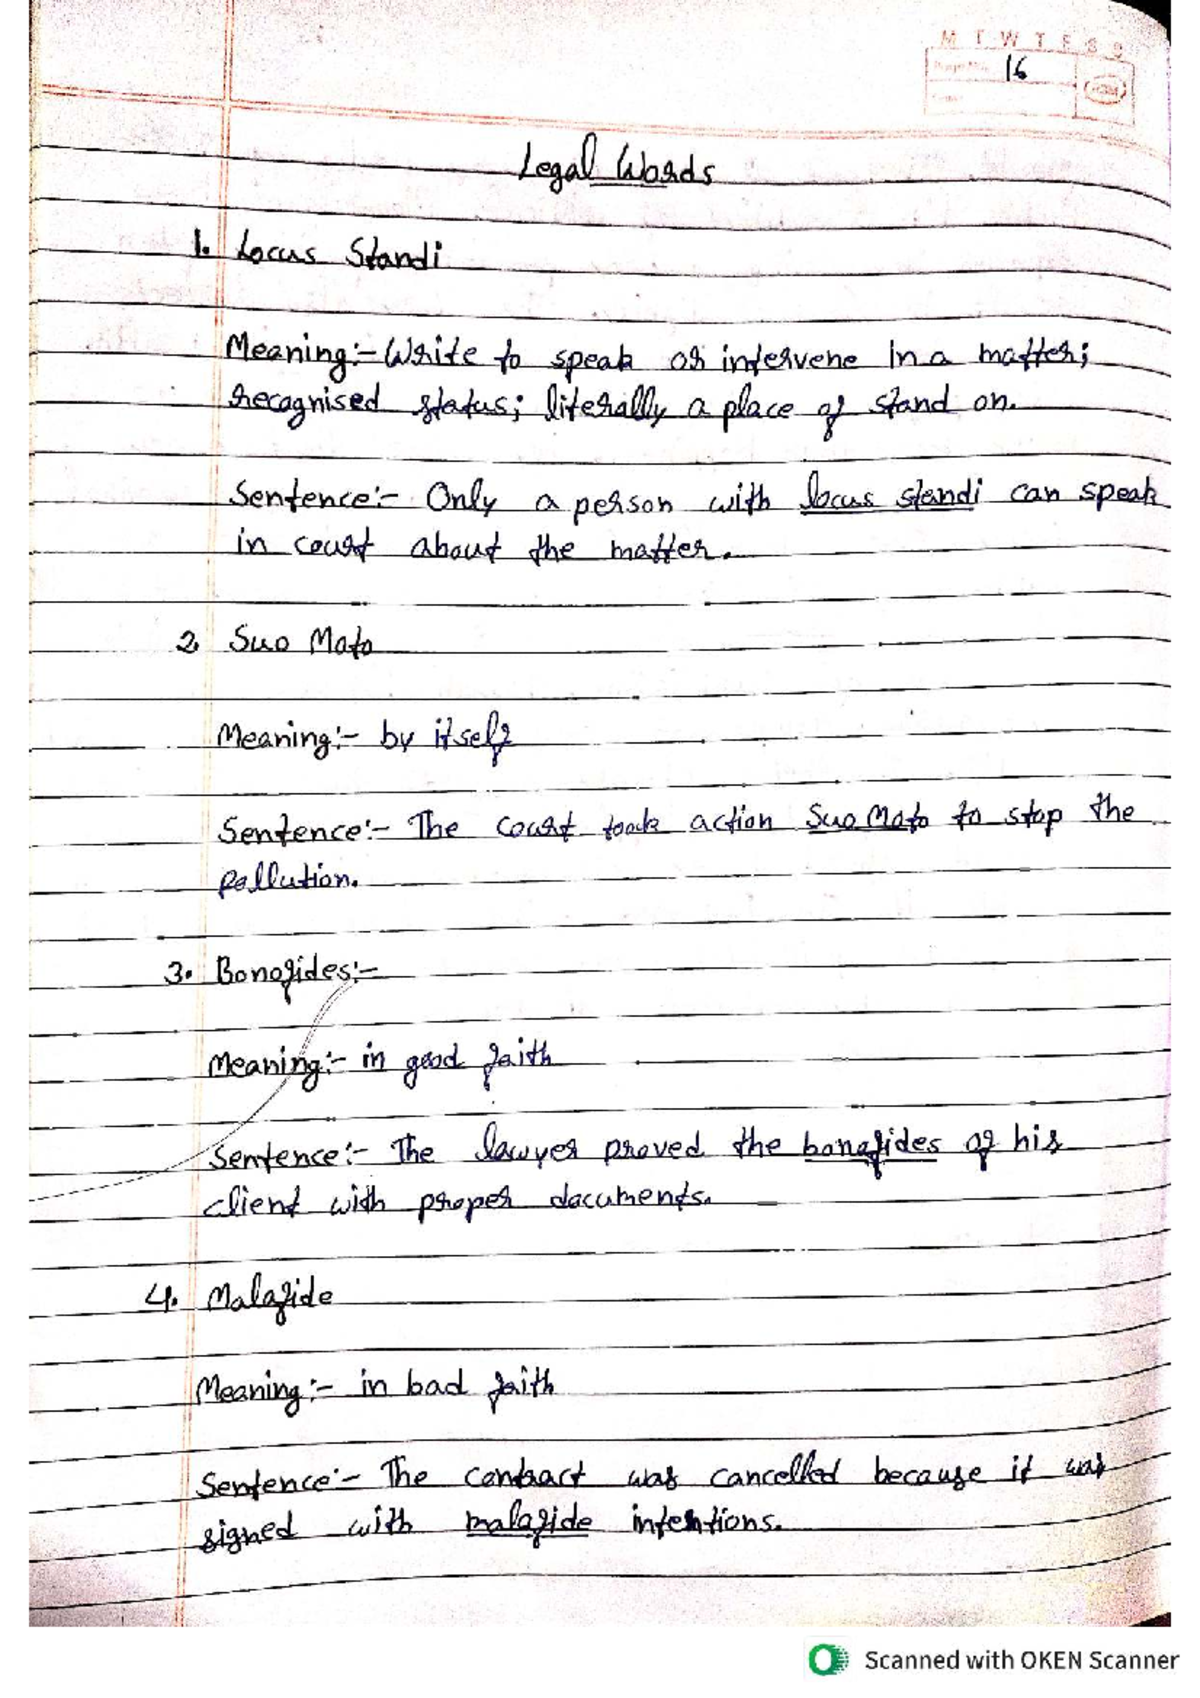 M T W T F S S
Page No. 16
Legal Words
1. Locus Standi
Meaning:- Write to speak or intervene in a matter;
recognised status; literally a place of stand on.
Sentence:- Only a person with locus standi can speak
in court about the matter.
2. Suo Moto
Meaning:- by itself
Sentence:- The court took action Suo Moto to stop the
pollution.
3. Bonafides:-
Meaning:- in good faith
Sentence:- The lawyer proved the bonafides of his
client with proper documents.
4. Malafide
Meaning:- in bad faith
Sentence:- The contract was cancelled because it was
signed with malafide intentions.
Scanned with OKEN Scanner